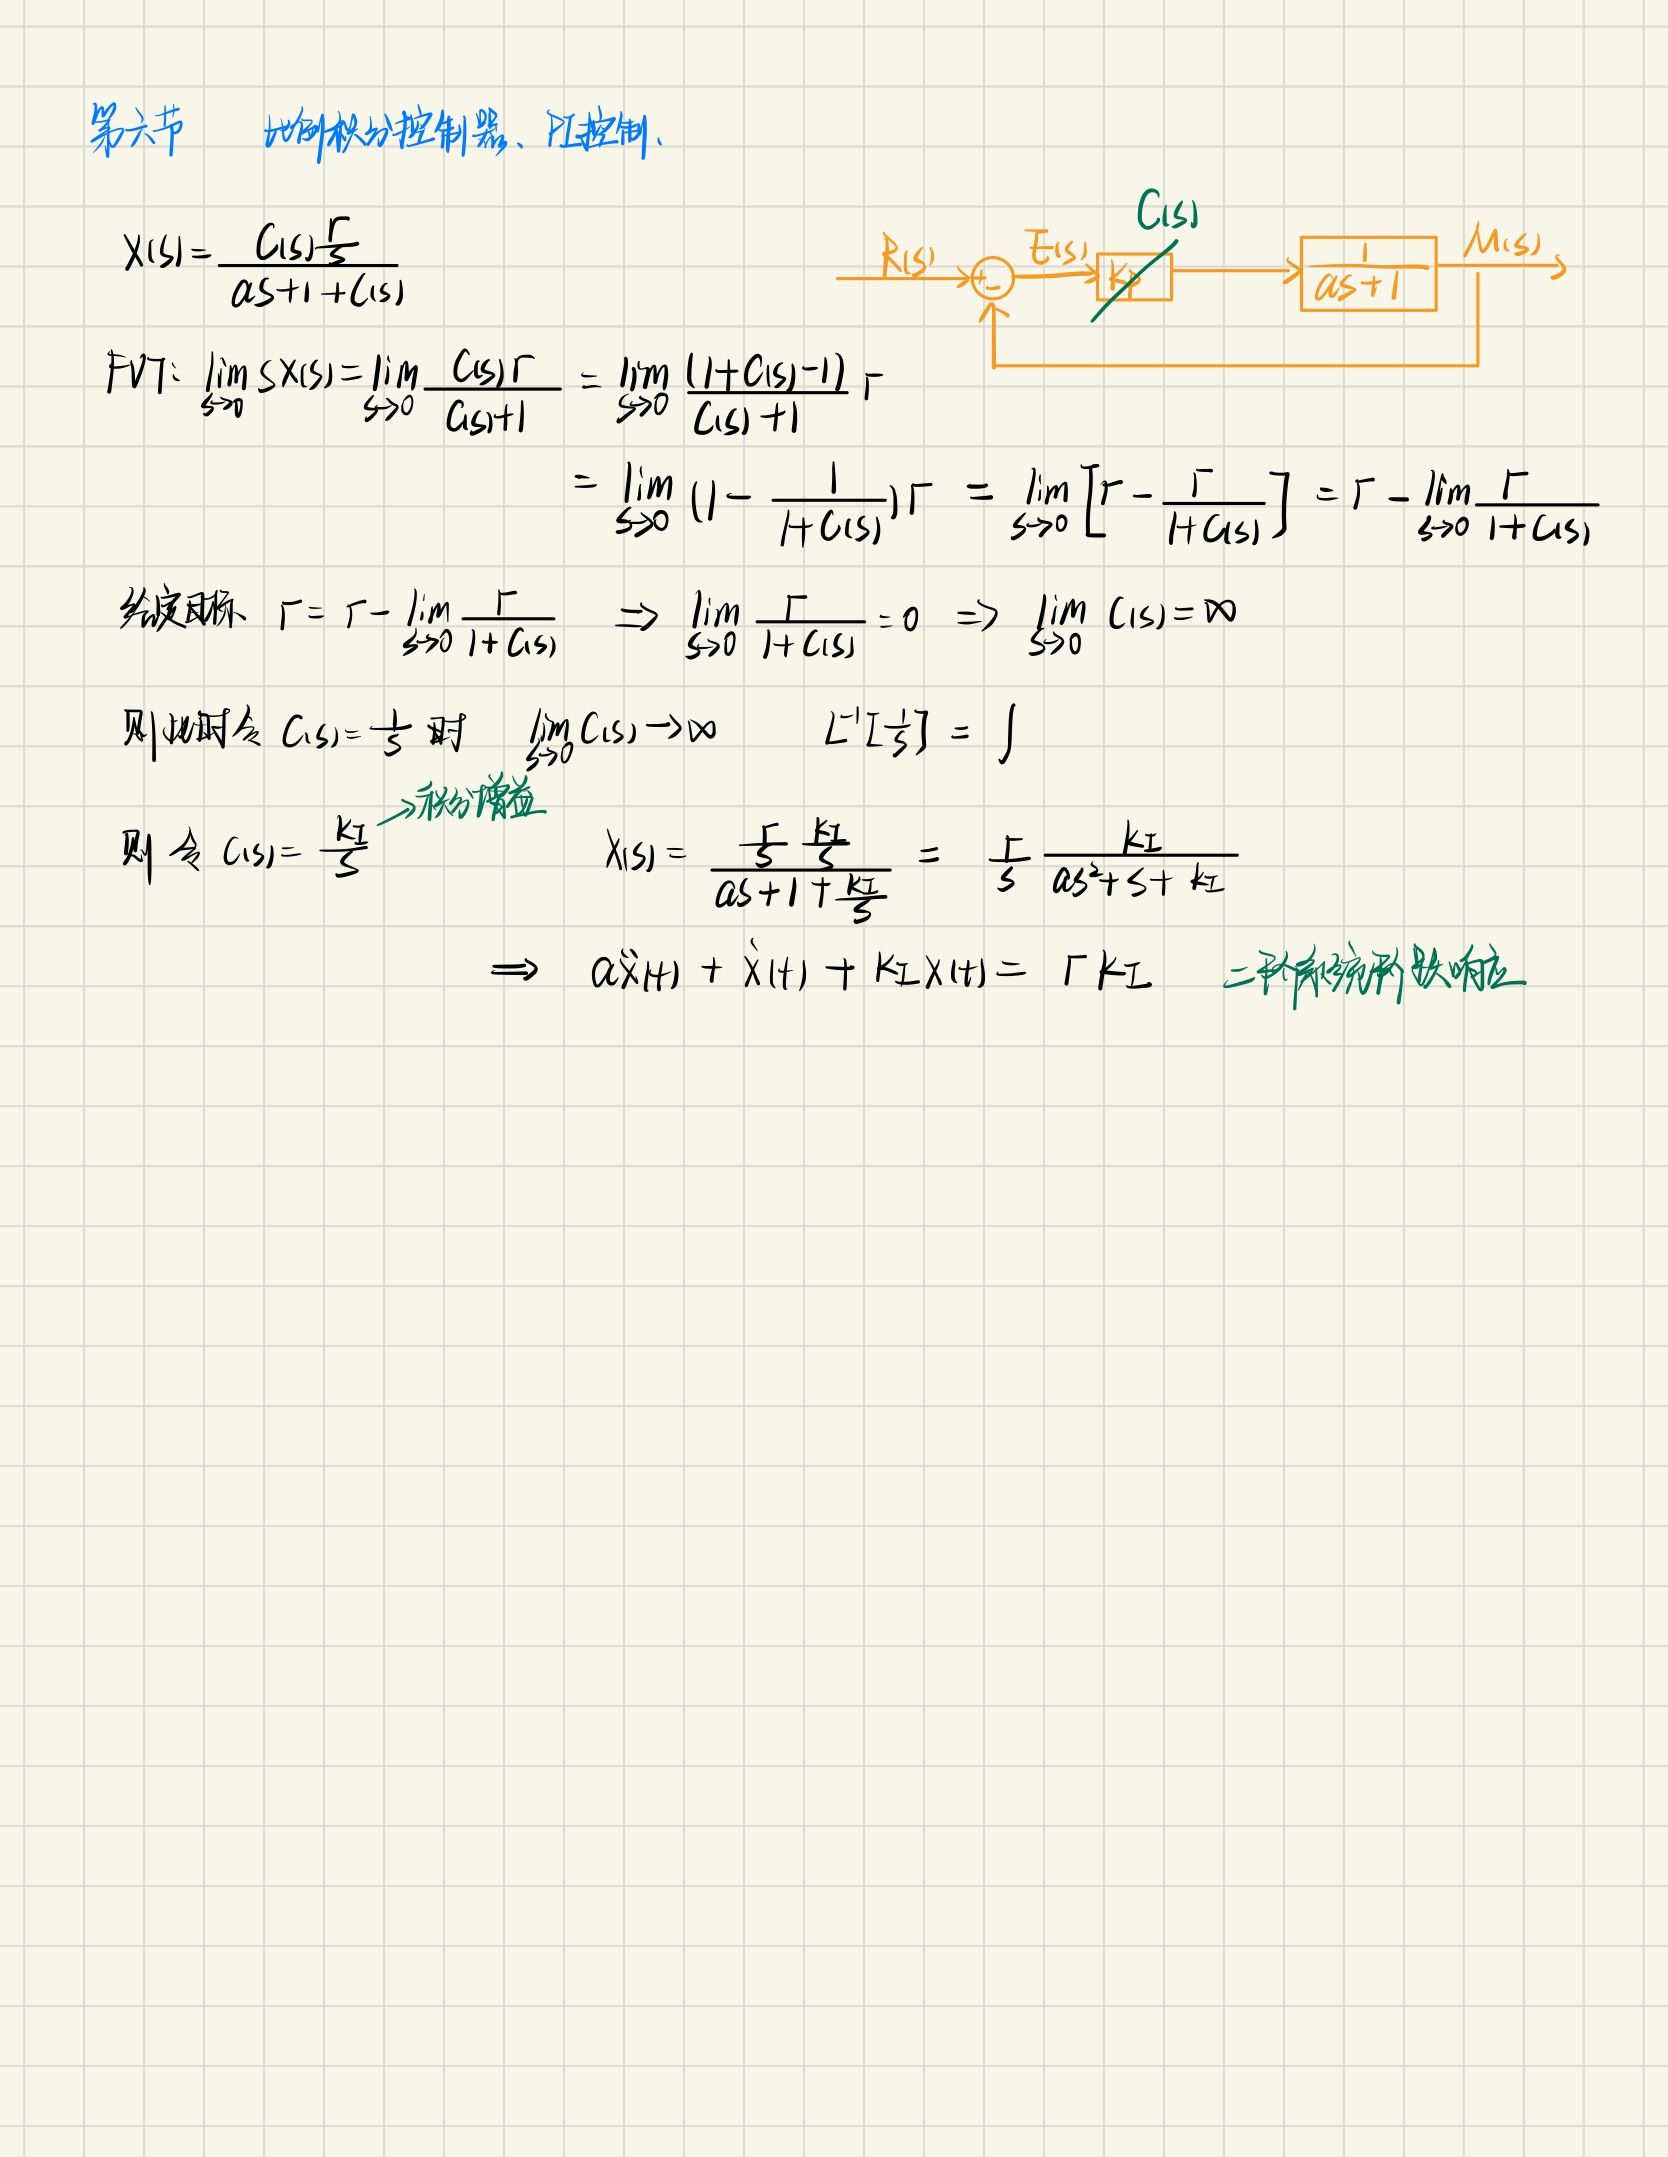 第六节 比例积分控制器、PI控制、
X(s) = \frac{C(s)\frac{r}{s}}{as+1+C(s)}
C(s)
R(s) + - E(s) Kp \frac{1}{as+1} M(s)
FVT: \lim_{s→0} sX(s) = \lim_{s→0} \frac{C(s)r}{C(s)+1} = \lim_{s→0} \frac{(1+C(s)-1)}{C(s)+1} r
= \lim_{s→0} (1 - \frac{1}{1+C(s)}) r = \lim_{s→0} [r - \frac{r}{1+C(s)}] = r - \lim_{s→0} \frac{r}{1+C(s)}
给定目标 r = r - \lim_{s→0} \frac{r}{1+C(s)} ⇒ \lim_{s→0} \frac{r}{1+C(s)} = 0 ⇒ \lim_{s→0} C(s) = ∞
则此时令 C(s) = \frac{1}{s} 时 \lim_{s→0} C(s) → ∞ L^{-1}[\frac{1}{s}] = ∫
→积分增益
则令 C(s) = \frac{K_I}{s} X(s) = \frac{\frac{r}{s} \frac{K_I}{s}}{as+1+\frac{K_I}{s}} = \frac{r}{s} \frac{K_I}{as²+s+K_I}
⇒ aẍ(t) + ẋ(t) + K_I x(t) = r K_I 二阶系统阶跃响应